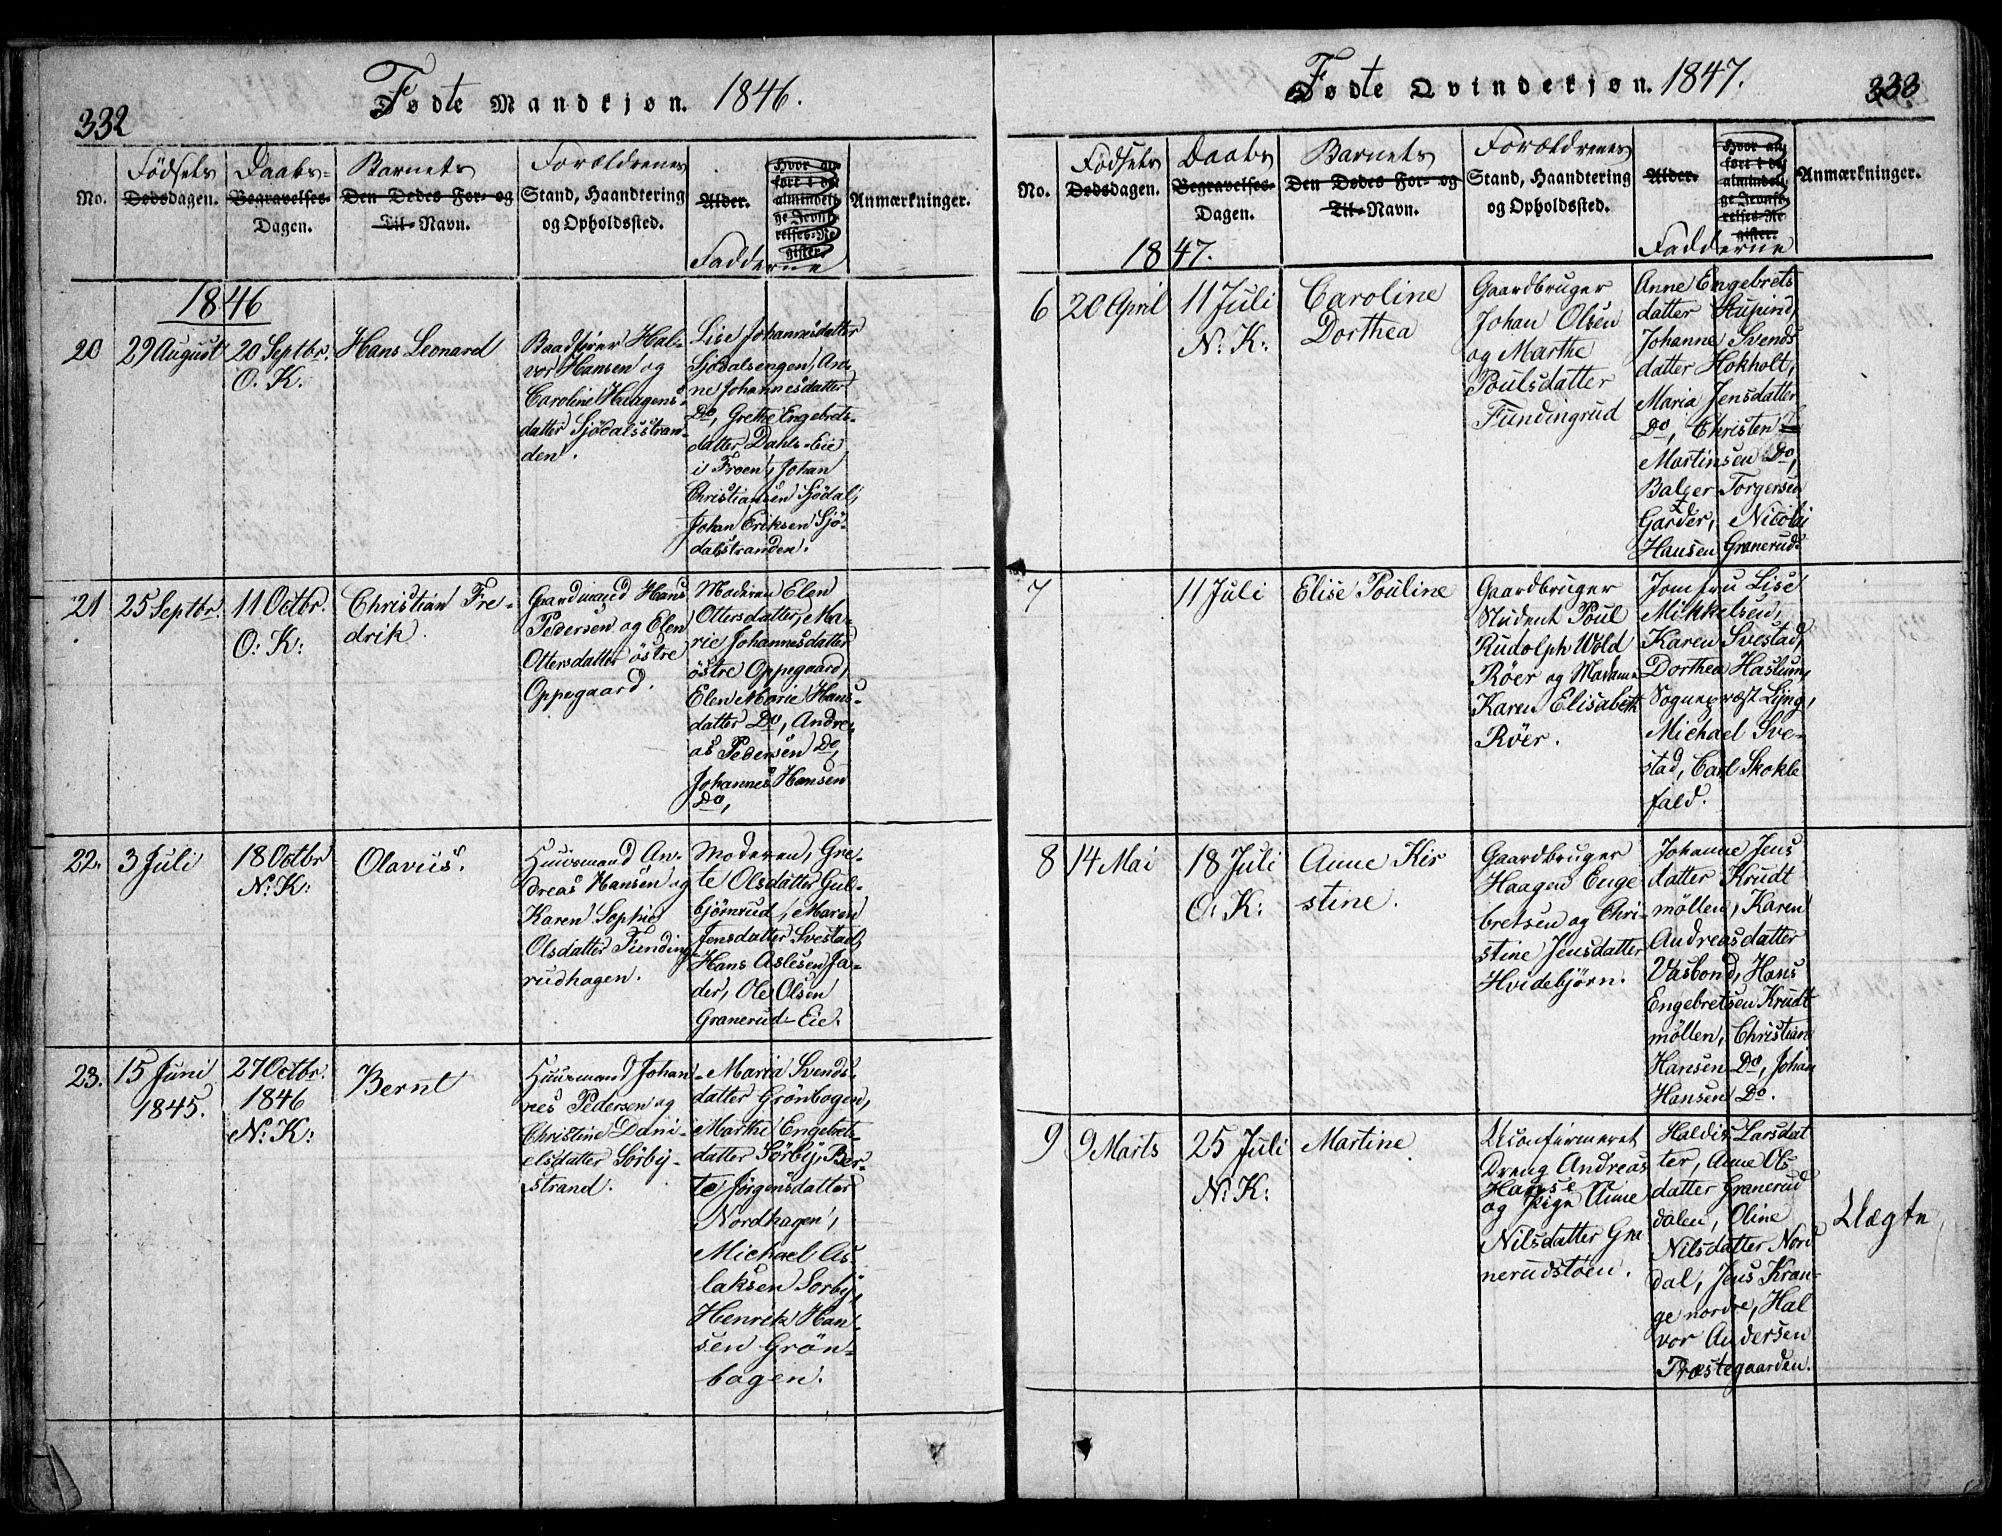 332
Fødte Mandkjøn. 1846.
No.
Fødsels
Dødsdagen.
Daabs-
Begravelses-
Dagen.
Barnets
Den Dødes For- og
Til-Navn.
Forældrenes
Stand, Haandtering
og Opholdssted.
Alder.
Hvor an-
ført i det
almindeli-
ge Jevnfø-
relses-Re-
gister.
Fadderne
Anmærkninger.
1846
20
29 August
20 Septbr.
O. K.
Hans Leonard
Baadfører Hal-
vor Hansen og
Caroline Haagens-
datter Sjödalsstran-
den.
Lise Johannesdatter
Sjödalsengen, An-
ne Johannesdatter
Do, Grethe Engebrets-
datter Dahls-Eie
i Froen, Johan
Christiansen Sjödal,
Johan Eriksen Sjö-
dalsstranden.
21
25 Septbr.
11 Octbr.
O: K:
Christian Fre-
drik.
Gaardmand Hans
Pedersen og Elen
Ottersdatter östre
Oppegaard.
Moderen Elen
Ottersdatter, Ma-
rie Johannesdatter
östre Oppegaard,
Elen Marie Hans-
datter Do, Andre-
as Pedersen Do,
Johannes Hansen
Do,
22.
3 Juli
18 Octbr
N: K:
Olaviis.
Huusmand An-
dreas Hansen og
Karen Sophie
Olsdatter Funding-
rudhagen.
Moderen, Gre-
te Olsdatter Gul-
bjørnrud, Maren
Jensdatter Svestad,
Hans Aslesen Ja-
der, Ole Olsen
Granerud-Eie.
23.
15 Juni
1845.
27 Octbr.
1846
N: K:
Bernt
Huusmand Johan-
nes Pedersen og
Christine Dani-
elsdatter Sørby-
strand.
Maria Svends-
datter Grönbogen,
Marthe Engebrets-
datter Sörby, Ber-
te Jørgensdatter
Nordhagen,
Michael As-
laksen Sorby,
Henrik Han-
sen Grön-
bogen.
Fødte Qvindekjøn. 1847.
333
No.
Fødsels
Dødsdagen.
Daabs
Begravelses-
Dagen.
Barnets
Den Dødes For- og
Til-Navn.
Forældrenes
Stand, Haandtering
og Opholdssted.
Alder.
Hvor an-
ført i det
almindeli-
ge Jevnfø-
relses-Re-
gister.
Fadderne
Anmærkninger.
1847.
6
20 April
11 Juli
N: K:
Caroline
Dorthea
Gaardbruger
Johan Olsen
og Marthe
Poulsdatter
Fundingrud
Anne Engebrets
datter Stupind,
Johanne Svends
datter Hokholt,
Maria Jensdatter
Do, Christen
Martinsen Do,
Balzer Torgersen
Garder, Nicolai
Hansen Granerud.
7
11 Juli
Elise Pouline
Gaardbruger
Student Poul
Rudolph Wold
Röer og Madame
Karen Elisabeth
Röer.
Jomfru Lise
Mikkelsen,
Karen Svestad,
Dorthea Haslum,
Sogneprest Lyng,
Michael Sve-
stad, Carl Skokle
fald.
8
14 Mai
18 Juli
O: K:
Anne Kir
stine.
Gaardbruger
Haagen Enge
bretsen og Chri-
stine Jensdatter
Hvidebjørn.
Johanne Jens
datter Krudt
möllen, Karen
Andreasdatter
Vasbond, Hans
Engebretsen Krudt
möllen, Christian
Hansen Do, Johan
Hansen Do.
9
9 Marts
25 Juli
N: K:
Martine
Uconfirmeret
Dreng Andreas
Hanse
og Pige Anne
Nilsdatter Gra
nerudstøen.
Haldis Larsdat
ter, Anne Ols
datter Granerud
dalen, Oline
Nilsdatter Nord
dal, Jens Kran-
ge nordre, Hal
vor Andersen
Præstegaarden.
Uægte,